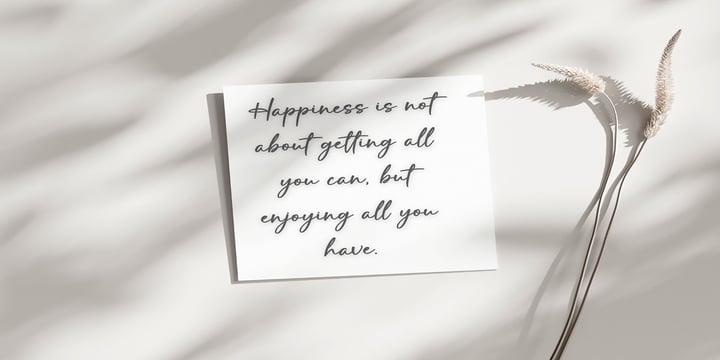 Happiness is not
about getting all
you can, but
enjoying all you
have.